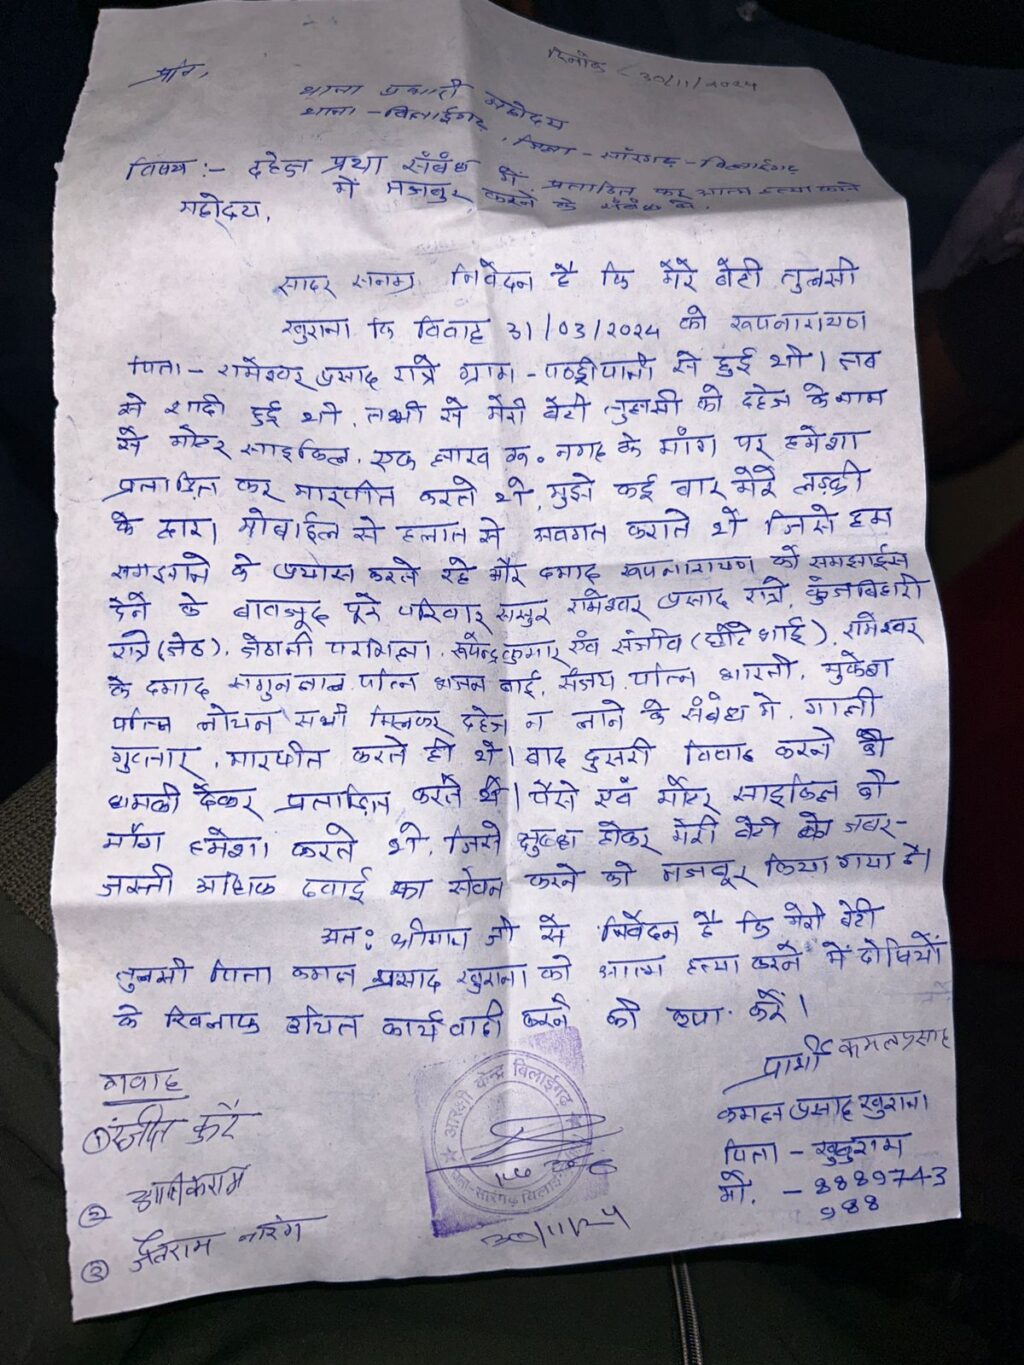 प्रति,
दिनांक 30/11/2024
थाना प्रभारी महोदय
थाना - बिलाईगढ़, जिला - सारंगढ़ - बिलाईगढ़
विषय :- दहेज प्रथा संबंध में प्रताडित कर आत्म हत्या करने
में मजबुर करने के संबंध में.
महोदय,
सादर सनम्र निवेदन है कि मेरे बेटी तुलसी
खुराना कि विवाह 31/03/2024 को रूपनारायण
पिता - रामेश्वर प्रसाद रात्रे ग्राम - से हुई थी। जब
से शादी हुई थी, तभी से मेरी बेटी तुलसी को दहेज के नाम
से मोटर साइकिल, एक लाख रू. नगद के माँग पर हमेशा
प्रताडित कर मारपीट करते थे, मुझे कई बार मेरे लड़की
के द्वारा मोबाईल से हलात से अवगत कराते थे जिसे हम
समझाने के प्रयास करते रहे और दमाद रूपनारायण को समझाईस
देने के बावजूद पूरे परिवार ससुर रामेश्वर प्रसाद रात्रे, कुंजबिहारी
रात्रे (जेठ), जेठानी परमिला, रूपेन्द्र कुमार एंव संजीव (छोटे भाई), रामेश्वर
के दमाद सगुनलाल पत्नि भजन बाई, संजय पत्नि भारती, मुकेश
पत्नि लोचन सभी मिलकर दहेज न लाने के संबंध में, गाली
गुप्तार, मारपीट करते ही थे। बाद दुसरी विवाह करने की
धमकी देकर प्रताड़ित करते थे। पैसे एवं मोटर साइकिल की
माँग हमेशा करते थे, जिसे क्षुब्ध होकर मेरी बेटी को जबर-
जस्ती दवाई का सेवन करने को मजबूर किया गया है।
अतः श्रीमान जी से निवेदन है कि मेरी बेटी
तुलसी पिता कमल प्रसाद खुराना को आत्म हत्या करने में दोषियों
के खिलाफ उचित कार्यवाही करने की कृपा करें।
प्रार्थी कमलप्रसाद
कमल प्रसाद खुराना
पिता - खुबुराम
मो. - 8889743
988
गवाह
① रंजीत कुर्रे
②
③ नारंग
आरक्षी केन्द्र बिलाईगढ़
जिला-सारंगढ़ बिलाईगढ़
30/11/24